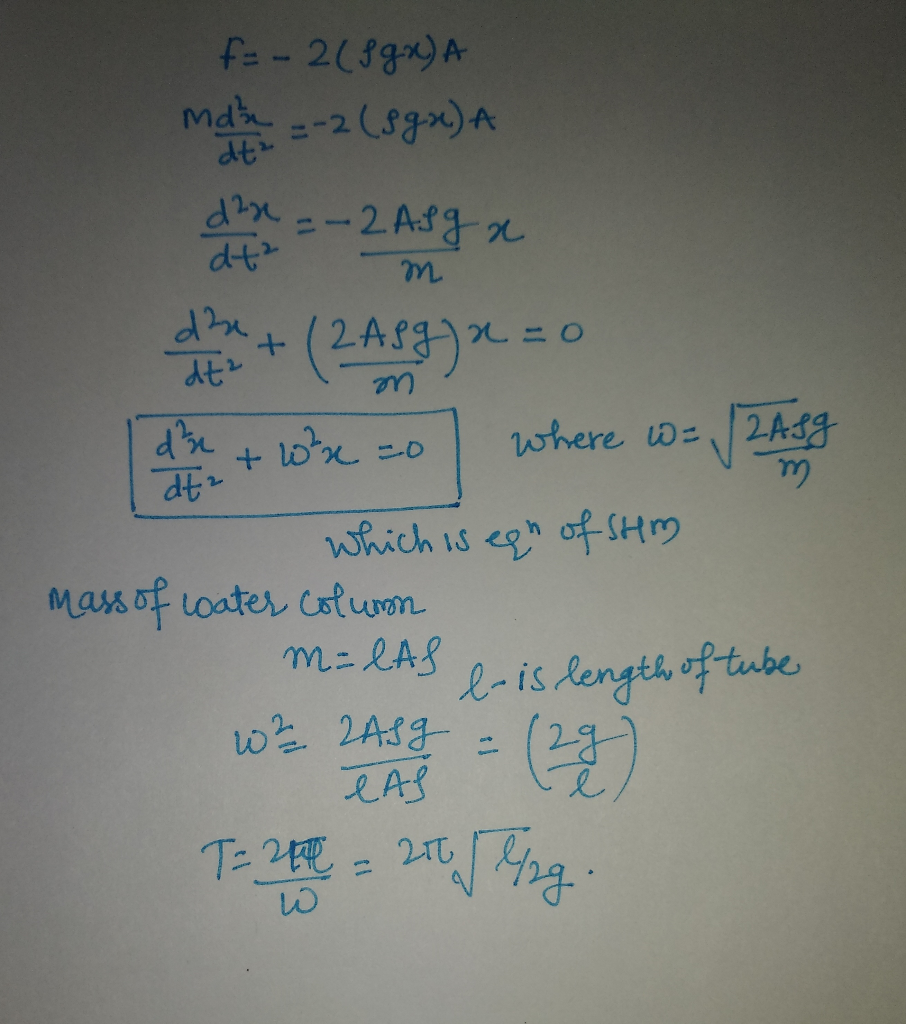 f = - 2(ρgx)A
md²x/dt² = -2(ρgx)A
d²x/dt² = - 2Aρg/m x
d²x/dt² + (2Aρg/m)x = 0
d²x/dt² + ω²x = 0 where ω = √2Aρg/m
which is eqⁿ of SHM
Mass of water column
m = lAρ l - is length of tube
ω² = 2Aρg/lAρ = (2g/l)
T = 2π/ω = 2π√l/2g .